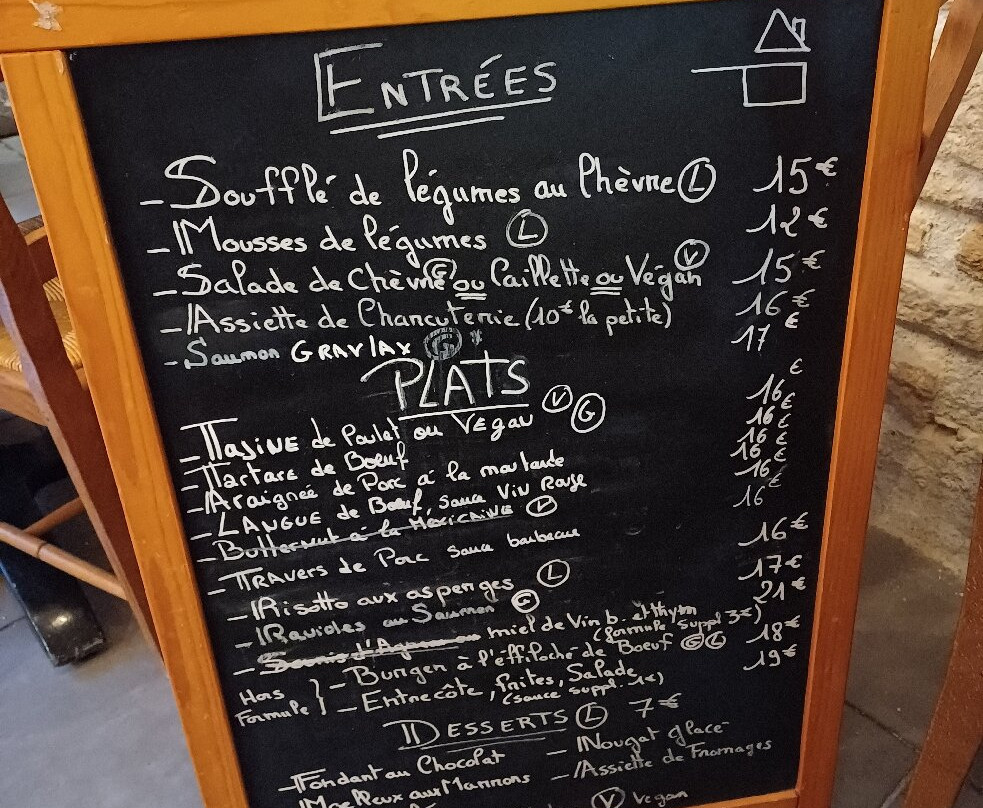 ENTRÉES
- Soufflé de légumes au Chèvre Ⓛ 15€
- Mousses de légumes Ⓛ 12€
- Salade de Chèvre Ⓖ ou Caillette ou Végan Ⓥ 15€
- Assiette de Charcuterie (10€ la petite) 16€
- Saumon GRAVLAX Ⓖ* 17€
PLATS
- TAJINE de Poulet ou VEgan Ⓥ Ⓖ 16€
- Tartare de Boeuf 16€
- Araignée de Porc à la moutarde 16€
- LANGUE de Boeuf, sauce Vin Rouge 16€
- Butternut à la MEXICAINE Ⓥ 16€
- TRAVERS de Porc sauce barbecue 16€
- Risotto aux asperges Ⓛ 16€
- Ravioles au Saumon Ⓖ 17€
- Souris d'Agneau au miel de Vin b. et thym 21€
(formule, suppl 3€)
Hors Formule } - Burger à l'éffiloché de Boeuf Ⓖ Ⓛ 18€
- Entrecôte, frites, Salade 19€
(sauce suppl. 1€)
DESSERTS Ⓛ 7€
- Fondant au Chocolat - Nougat glacé
- Moelleux aux Marrons - Assiette de Fromages
Ⓥ Vegan